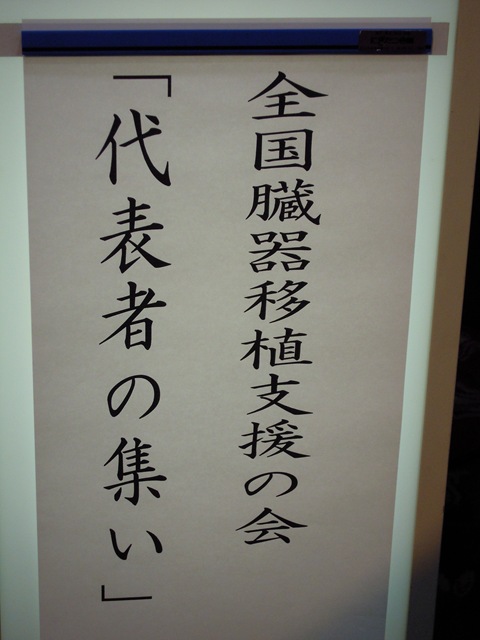 全国臓器移植支援の会
「代表者の集い」